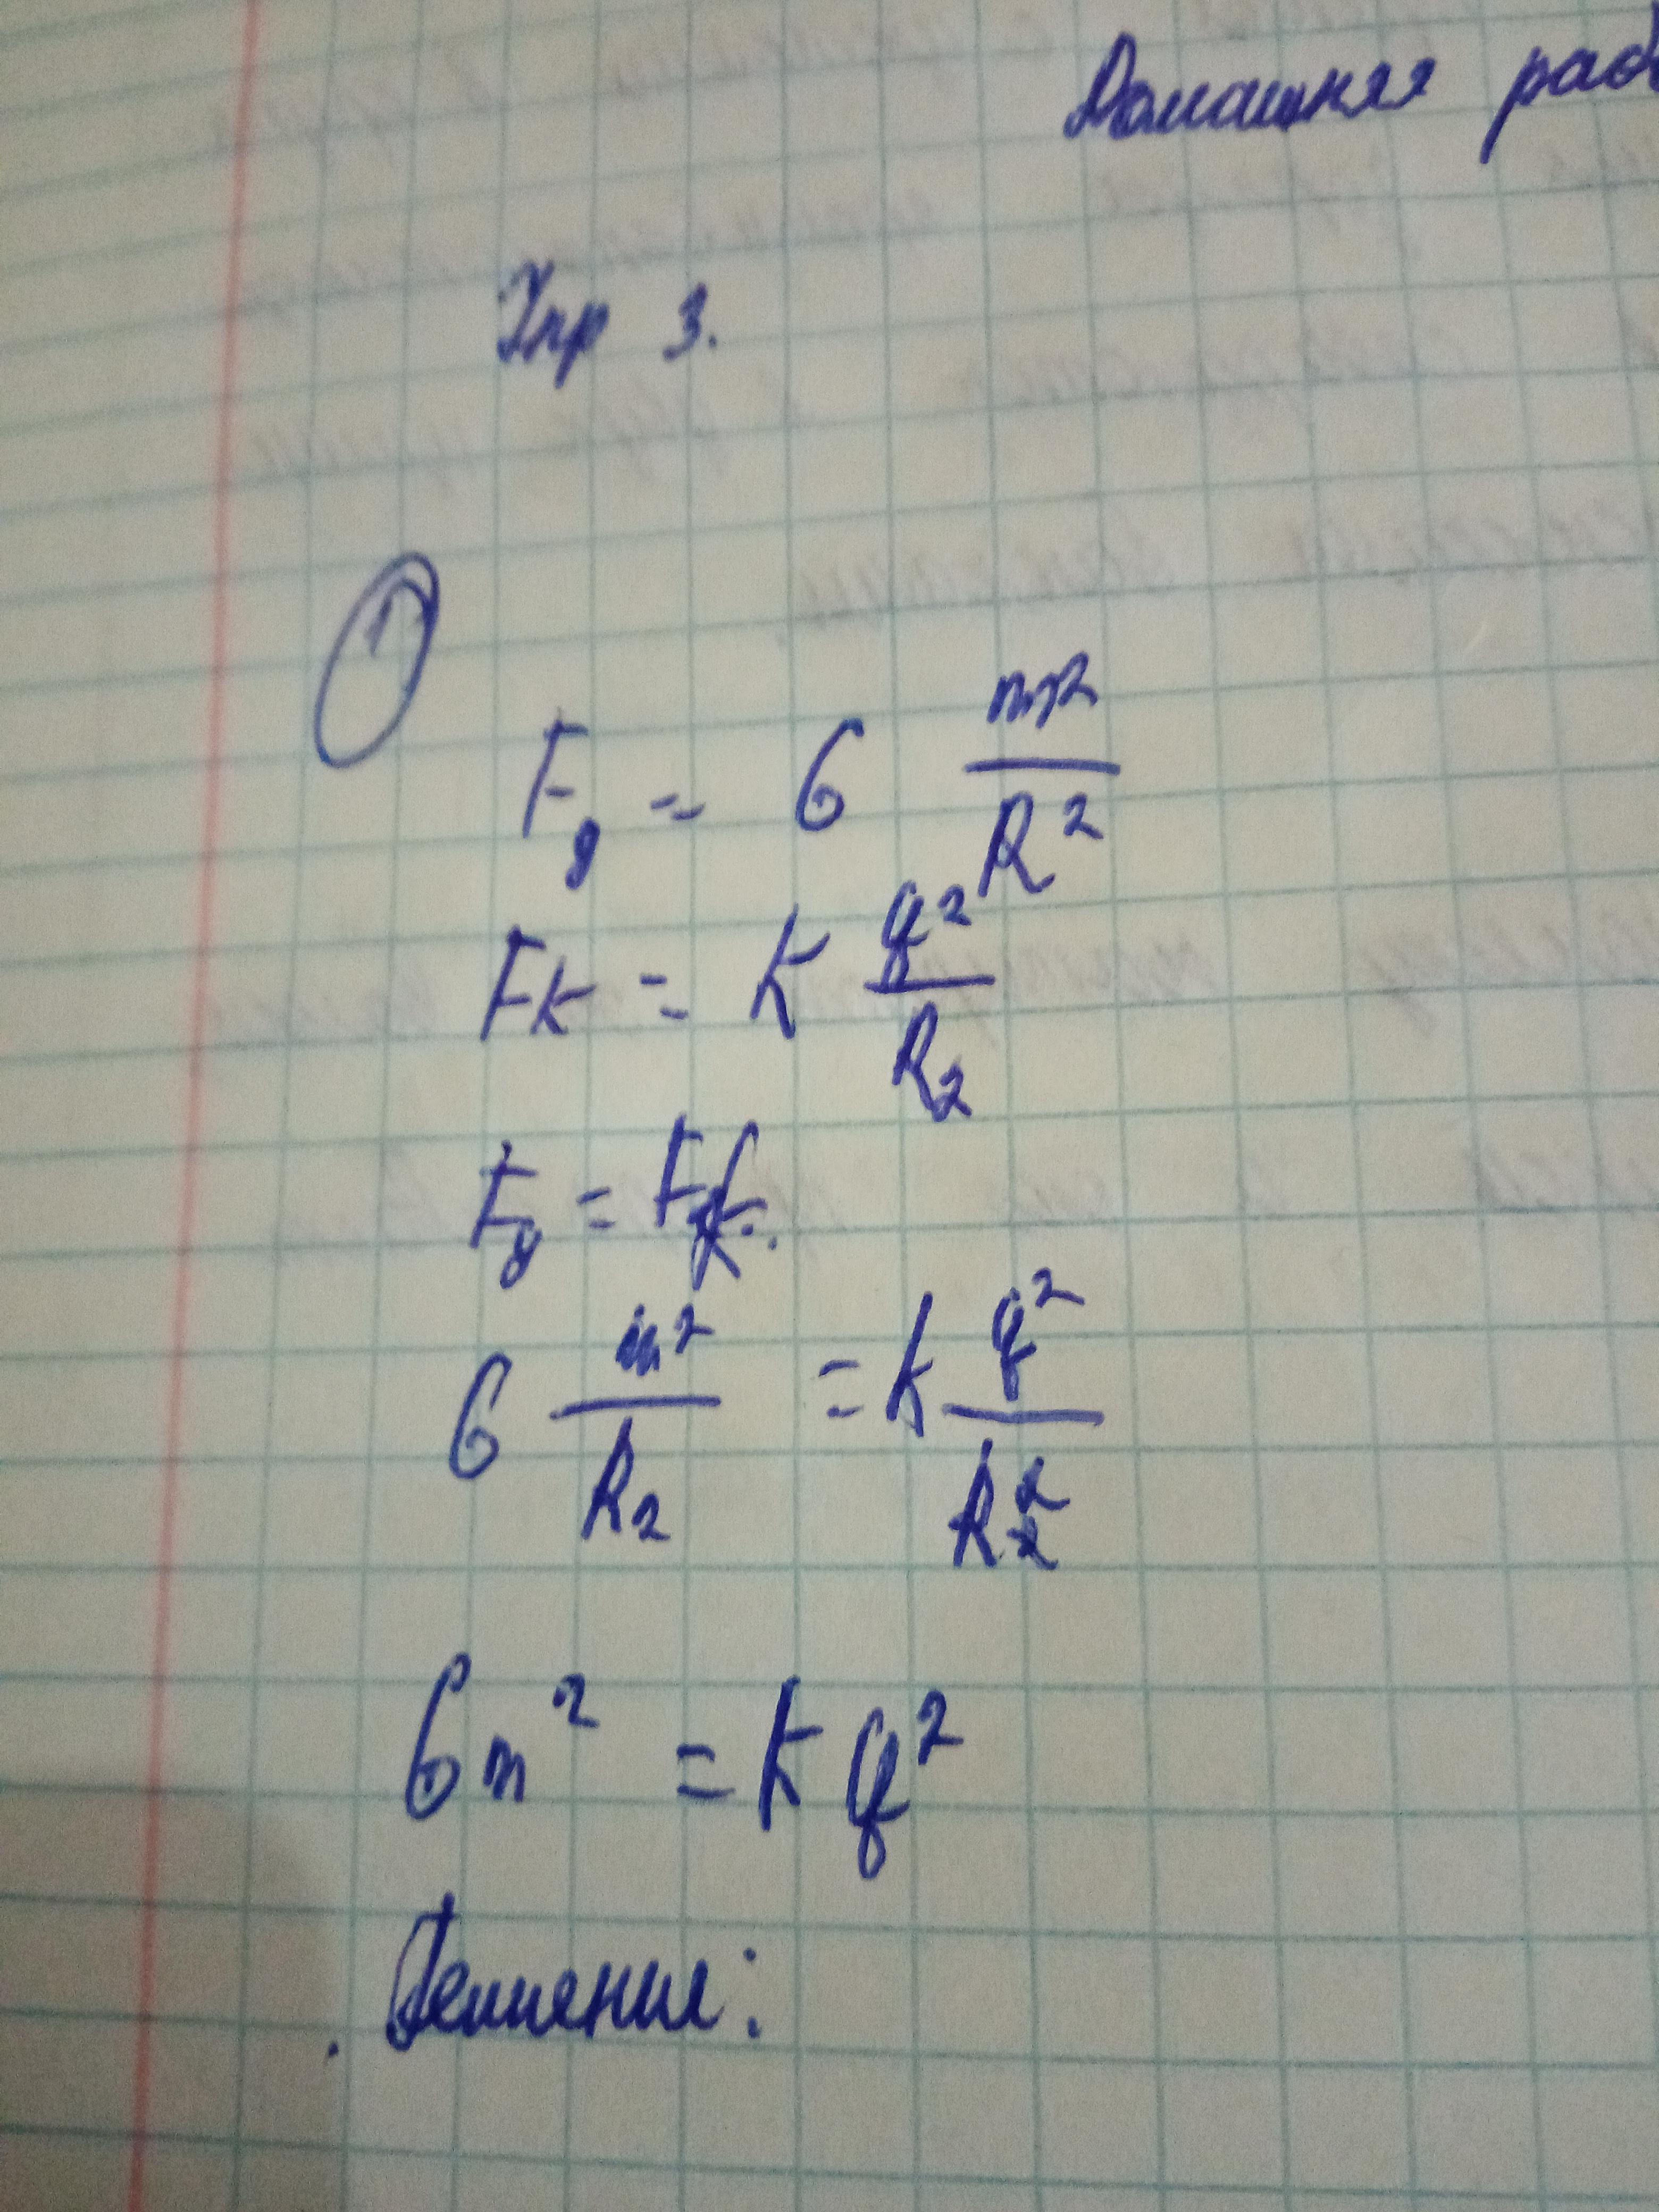 Домашняя раб
Упр 3.
1
Fg = G m²/R²
Fk = k q²/R₂
Fg = Fk.
G m²/R₂ = k q²/R²
Gm² = k q²
Решение: